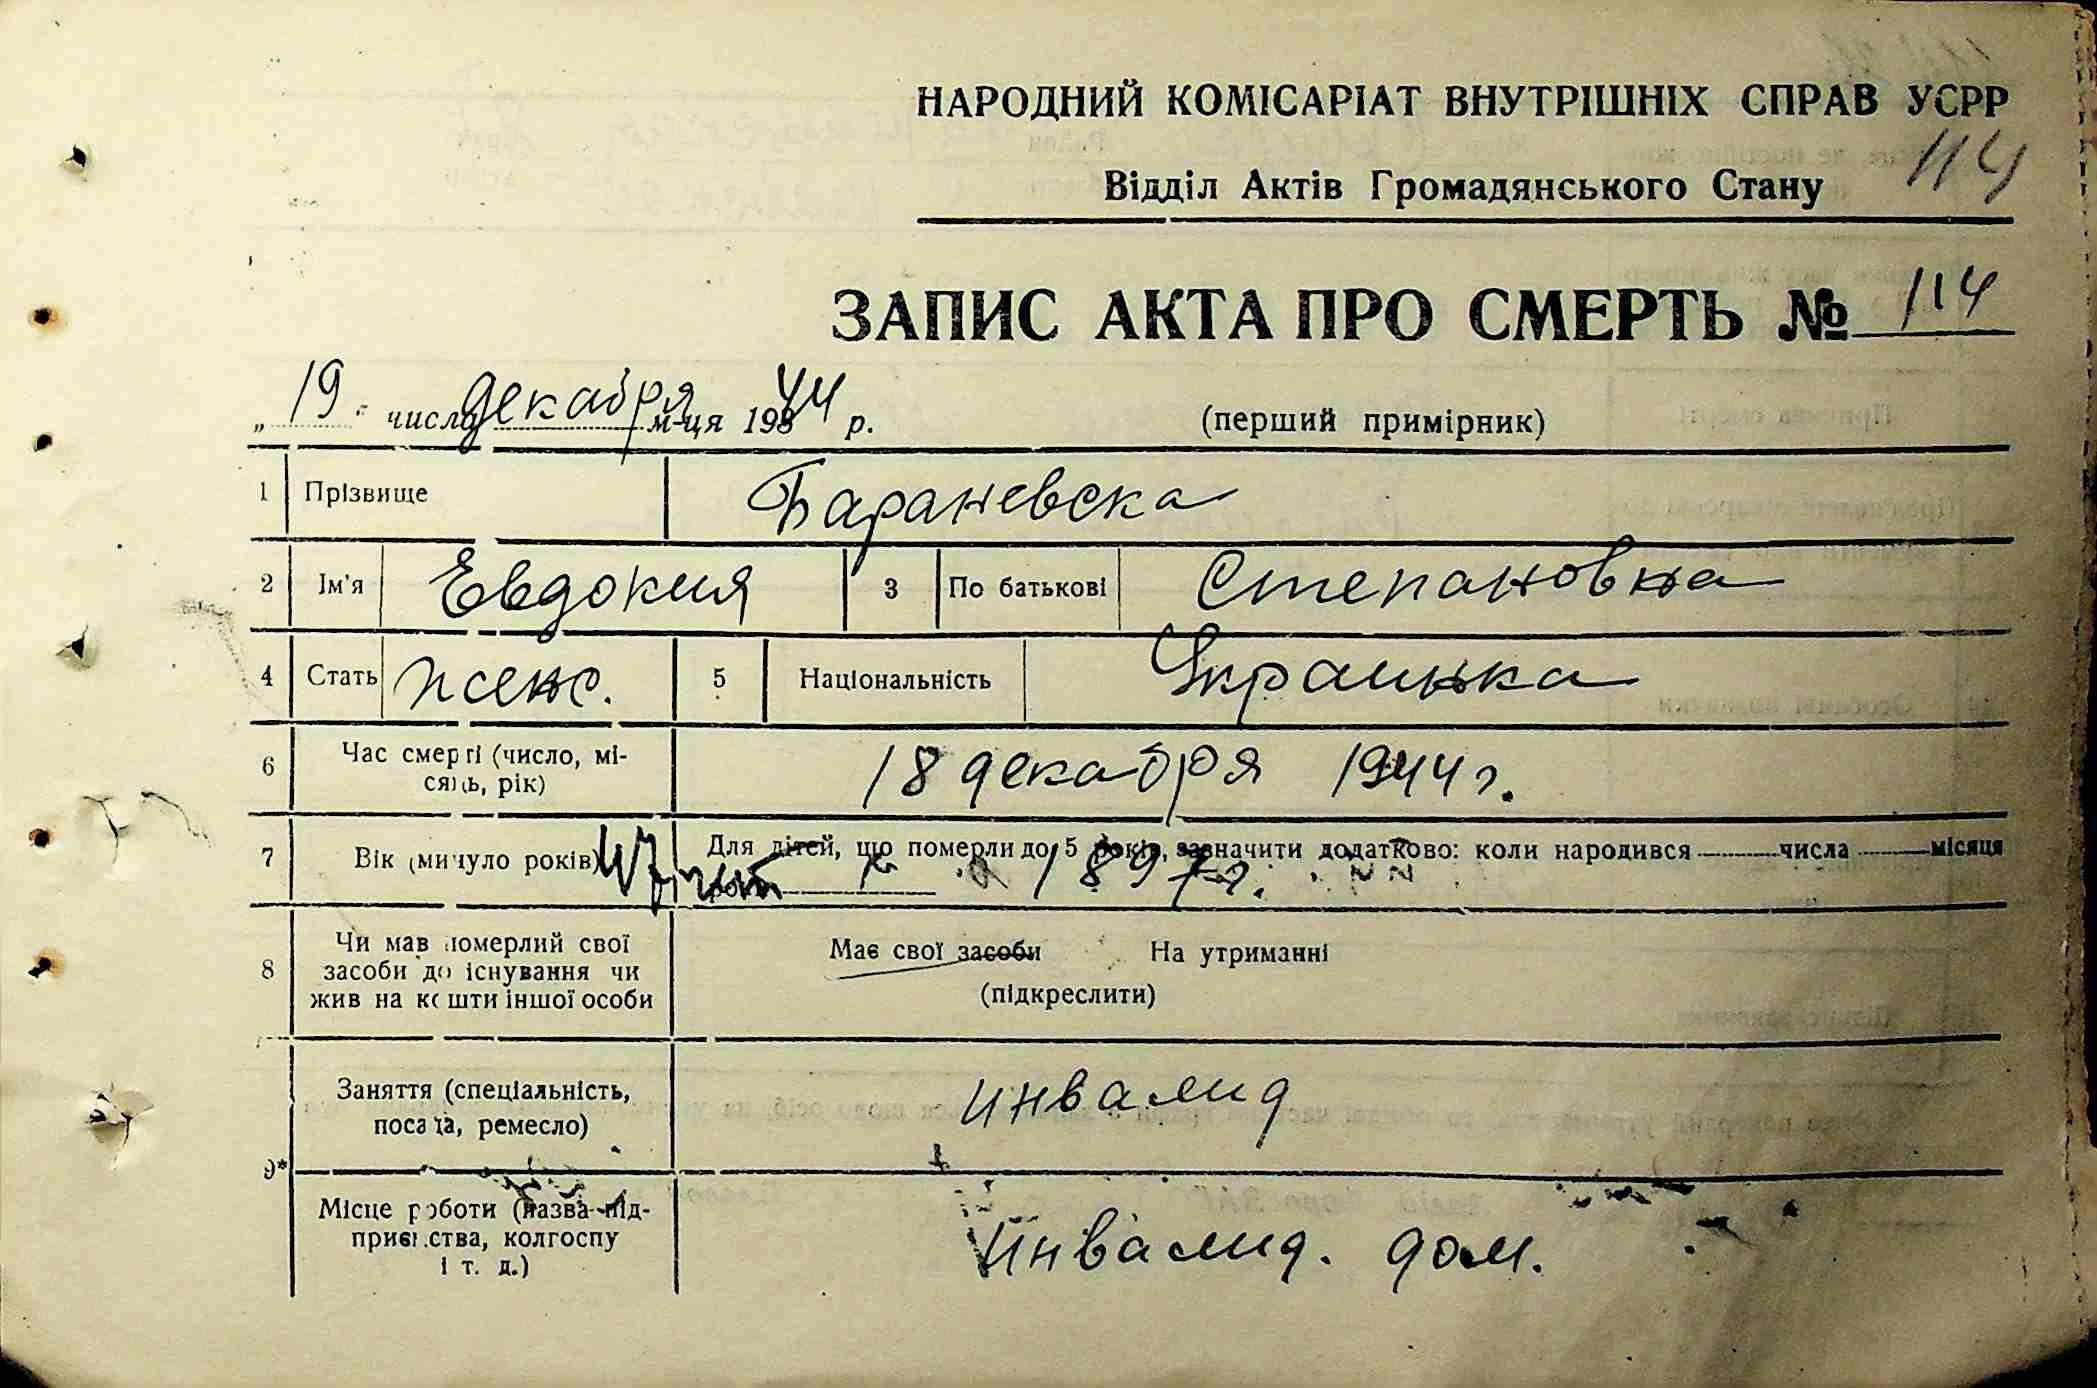 НАРОДНИЙ КОМІСАРІАТ ВНУТРІШНІХ СПРАВ УСРР
114
Відділ Актів Громадянського Стану
ЗАПИС АКТА ПРО СМЕРТЬ № 114
„ 19 " числа декабря м-ця 1944 р. (перший примірник)
1 Прізвище Бараневска
2 Ім'я Евдокия 3 По батькові Степановна
4 Стать женс. 5 Національність Украинка
6 Час смерті (число, мі-
сяць, рік) 18 декабря 1944 г.
7 Вік (минуло років) 47 лет Для дітей, що померли до 5 років, зазначити додатково: коли народився числа місяця
року 1897 г.
8 Чи мав померлий свої
засоби до існування чи
жив на кошти іншої особи
Має свої засоби На утриманні
(підкреслити)
9*
Заняття (спеціальність,
посада, ремесло) инвалид
Місце роботи (назва під-
приємства, колгоспу
і т. д.) Инвалид. дом.